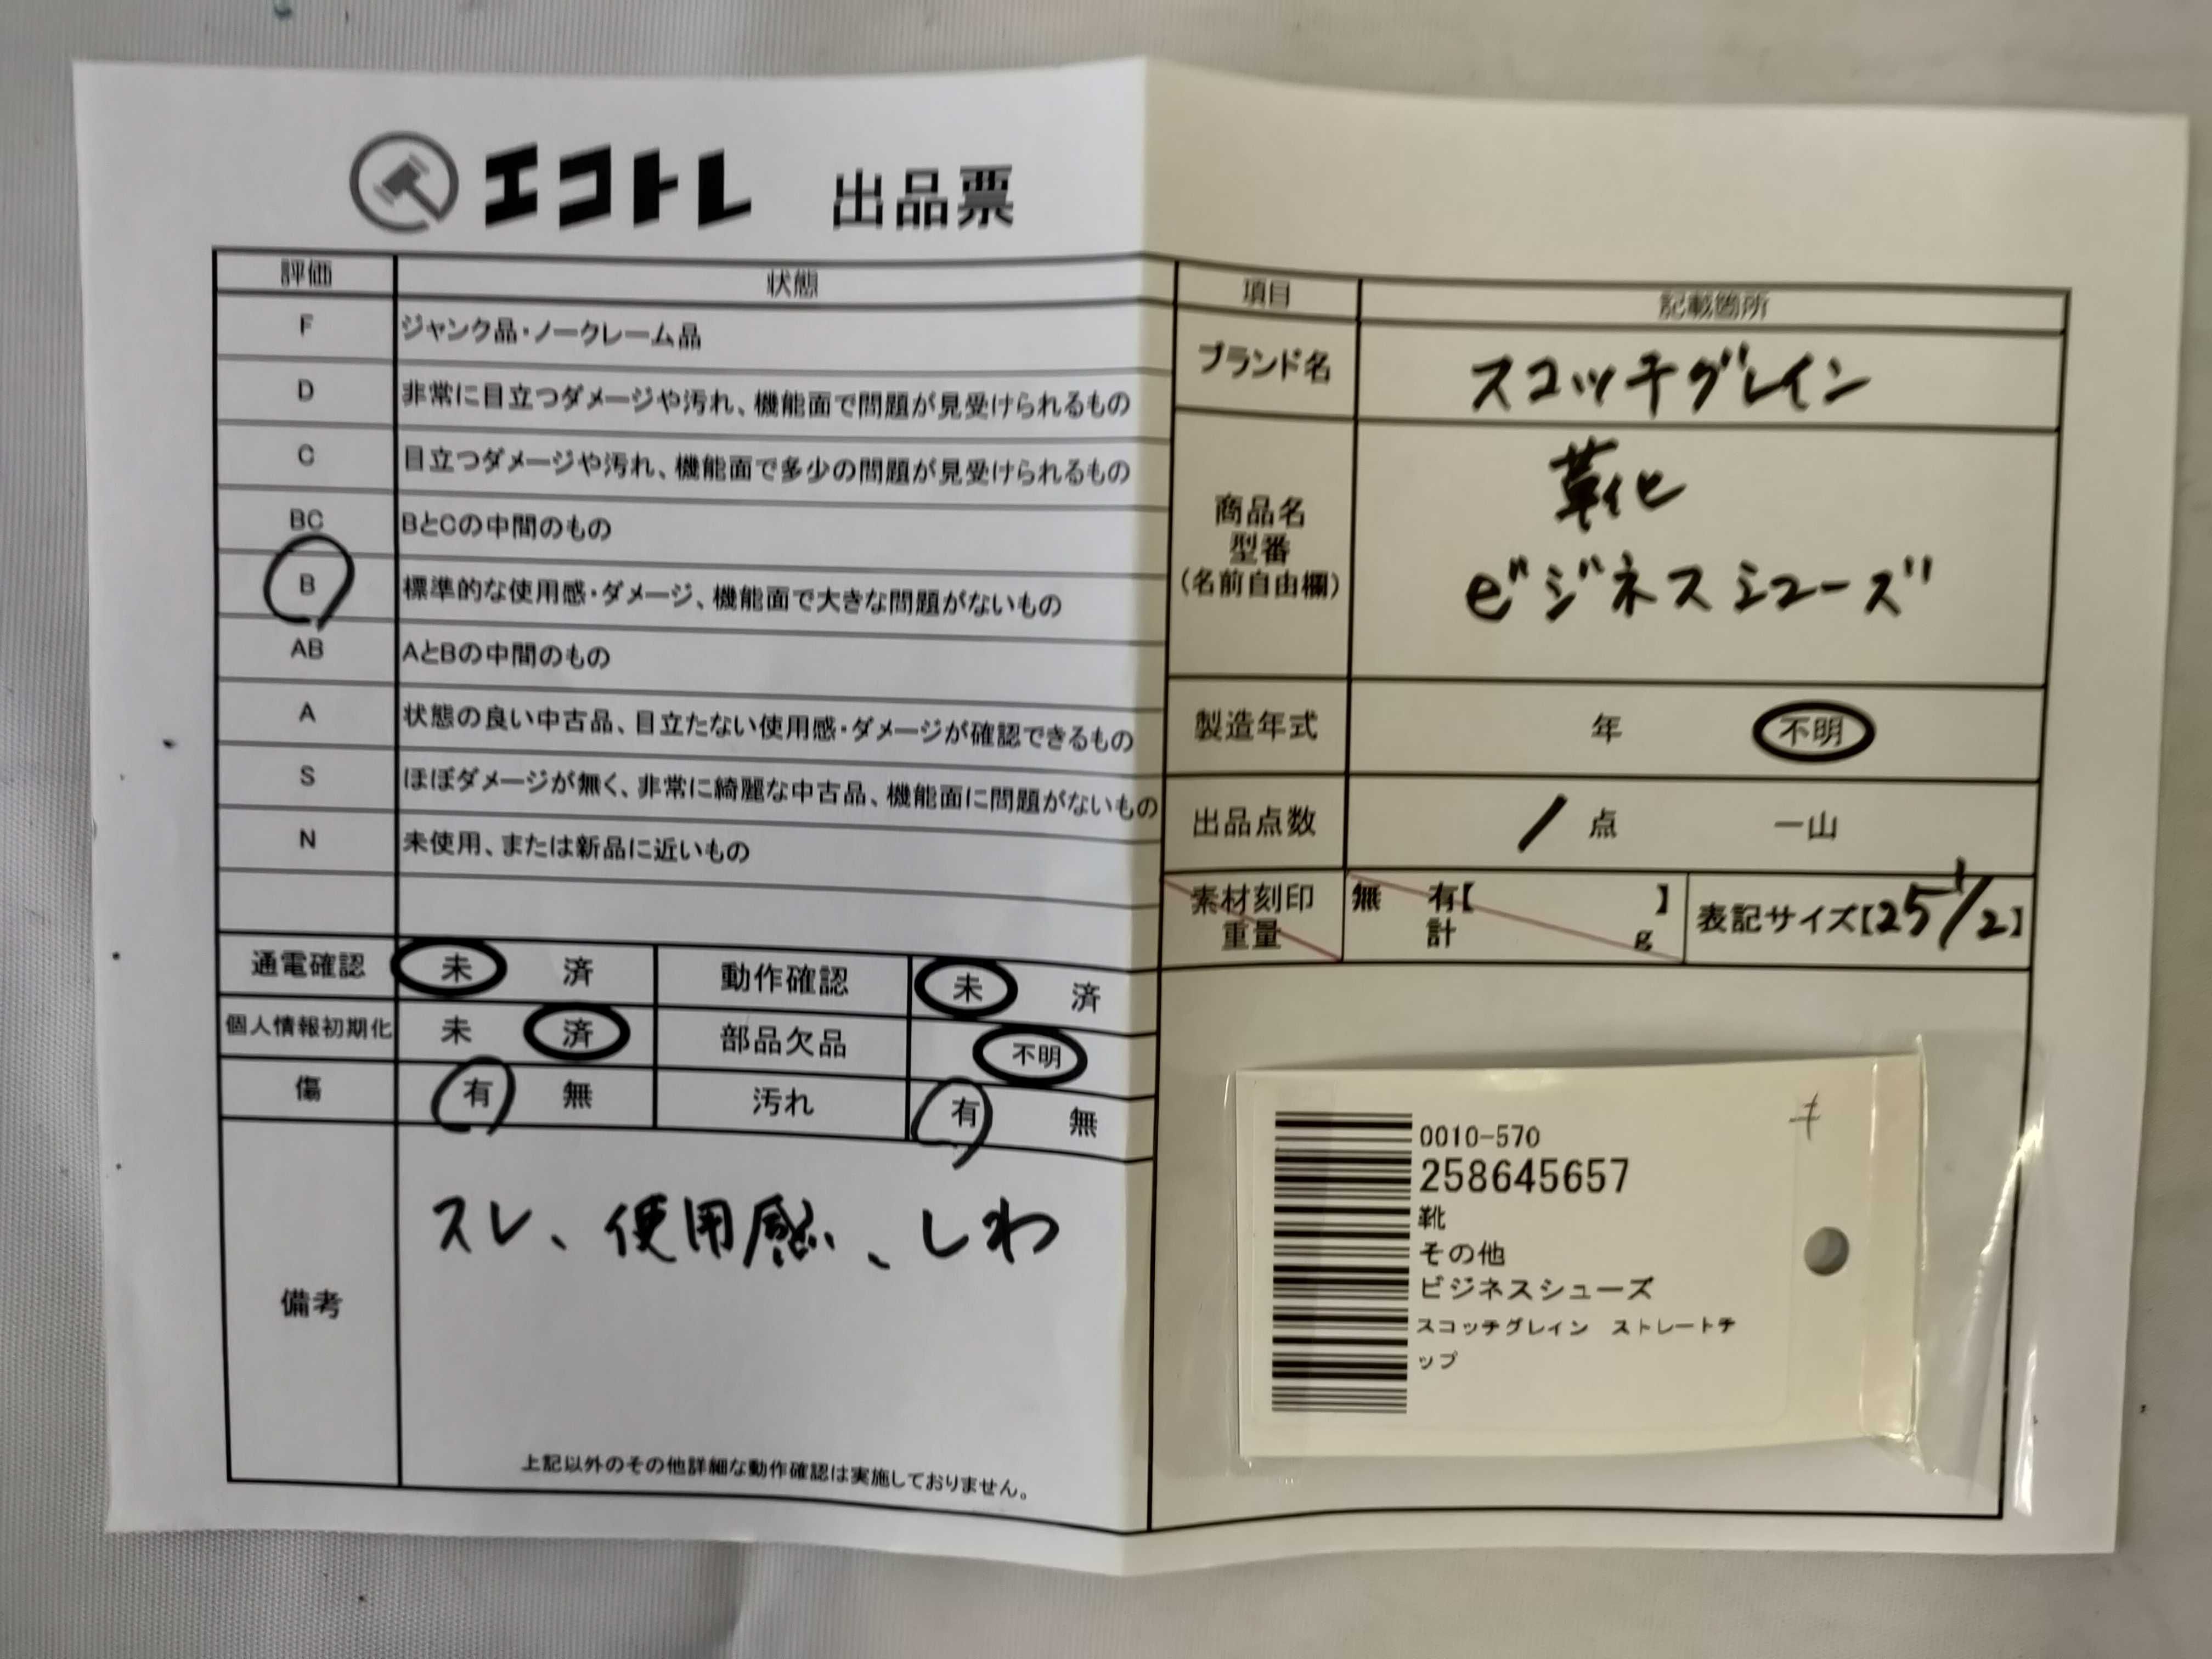 エコトレ 出品票
評価 状態
F ジャンク品・ノークレーム品
D 非常に目立つダメージや汚れ、機能面で問題が見受けられるもの
C 目立つダメージや汚れ、機能面で多少の問題が見受けられるもの
BC BとCの中間のもの
B 標準的な使用感・ダメージ、機能面で大きな問題がないもの
AB AとBの中間のもの
A 状態の良い中古品、目立たない使用感・ダメージが確認できるもの
S ほぼダメージが無く、非常に綺麗な中古品、機能面に問題がないもの
N 未使用、または新品に近いもの
通電確認 未 済 動作確認 未 済
個人情報初期化 未 済 部品欠品 不明
傷 有 無 汚れ 有 無
備考
スレ、使用感、しわ
上記以外のその他詳細な動作確認は実施しておりません。
項目 記載箇所
ブランド名 スコッチグレイン
商品名
型番
(名前自由欄)
靴
ビジネスシューズ
製造年式 年 不明
出品点数 1 点 一山
素材刻印 無 有【 】
重量 計 g
表記サイズ【25 1/2】
0010-570
258645657
靴
その他
ビジネスシューズ
スコッチグレイン ストレートチ
ップ